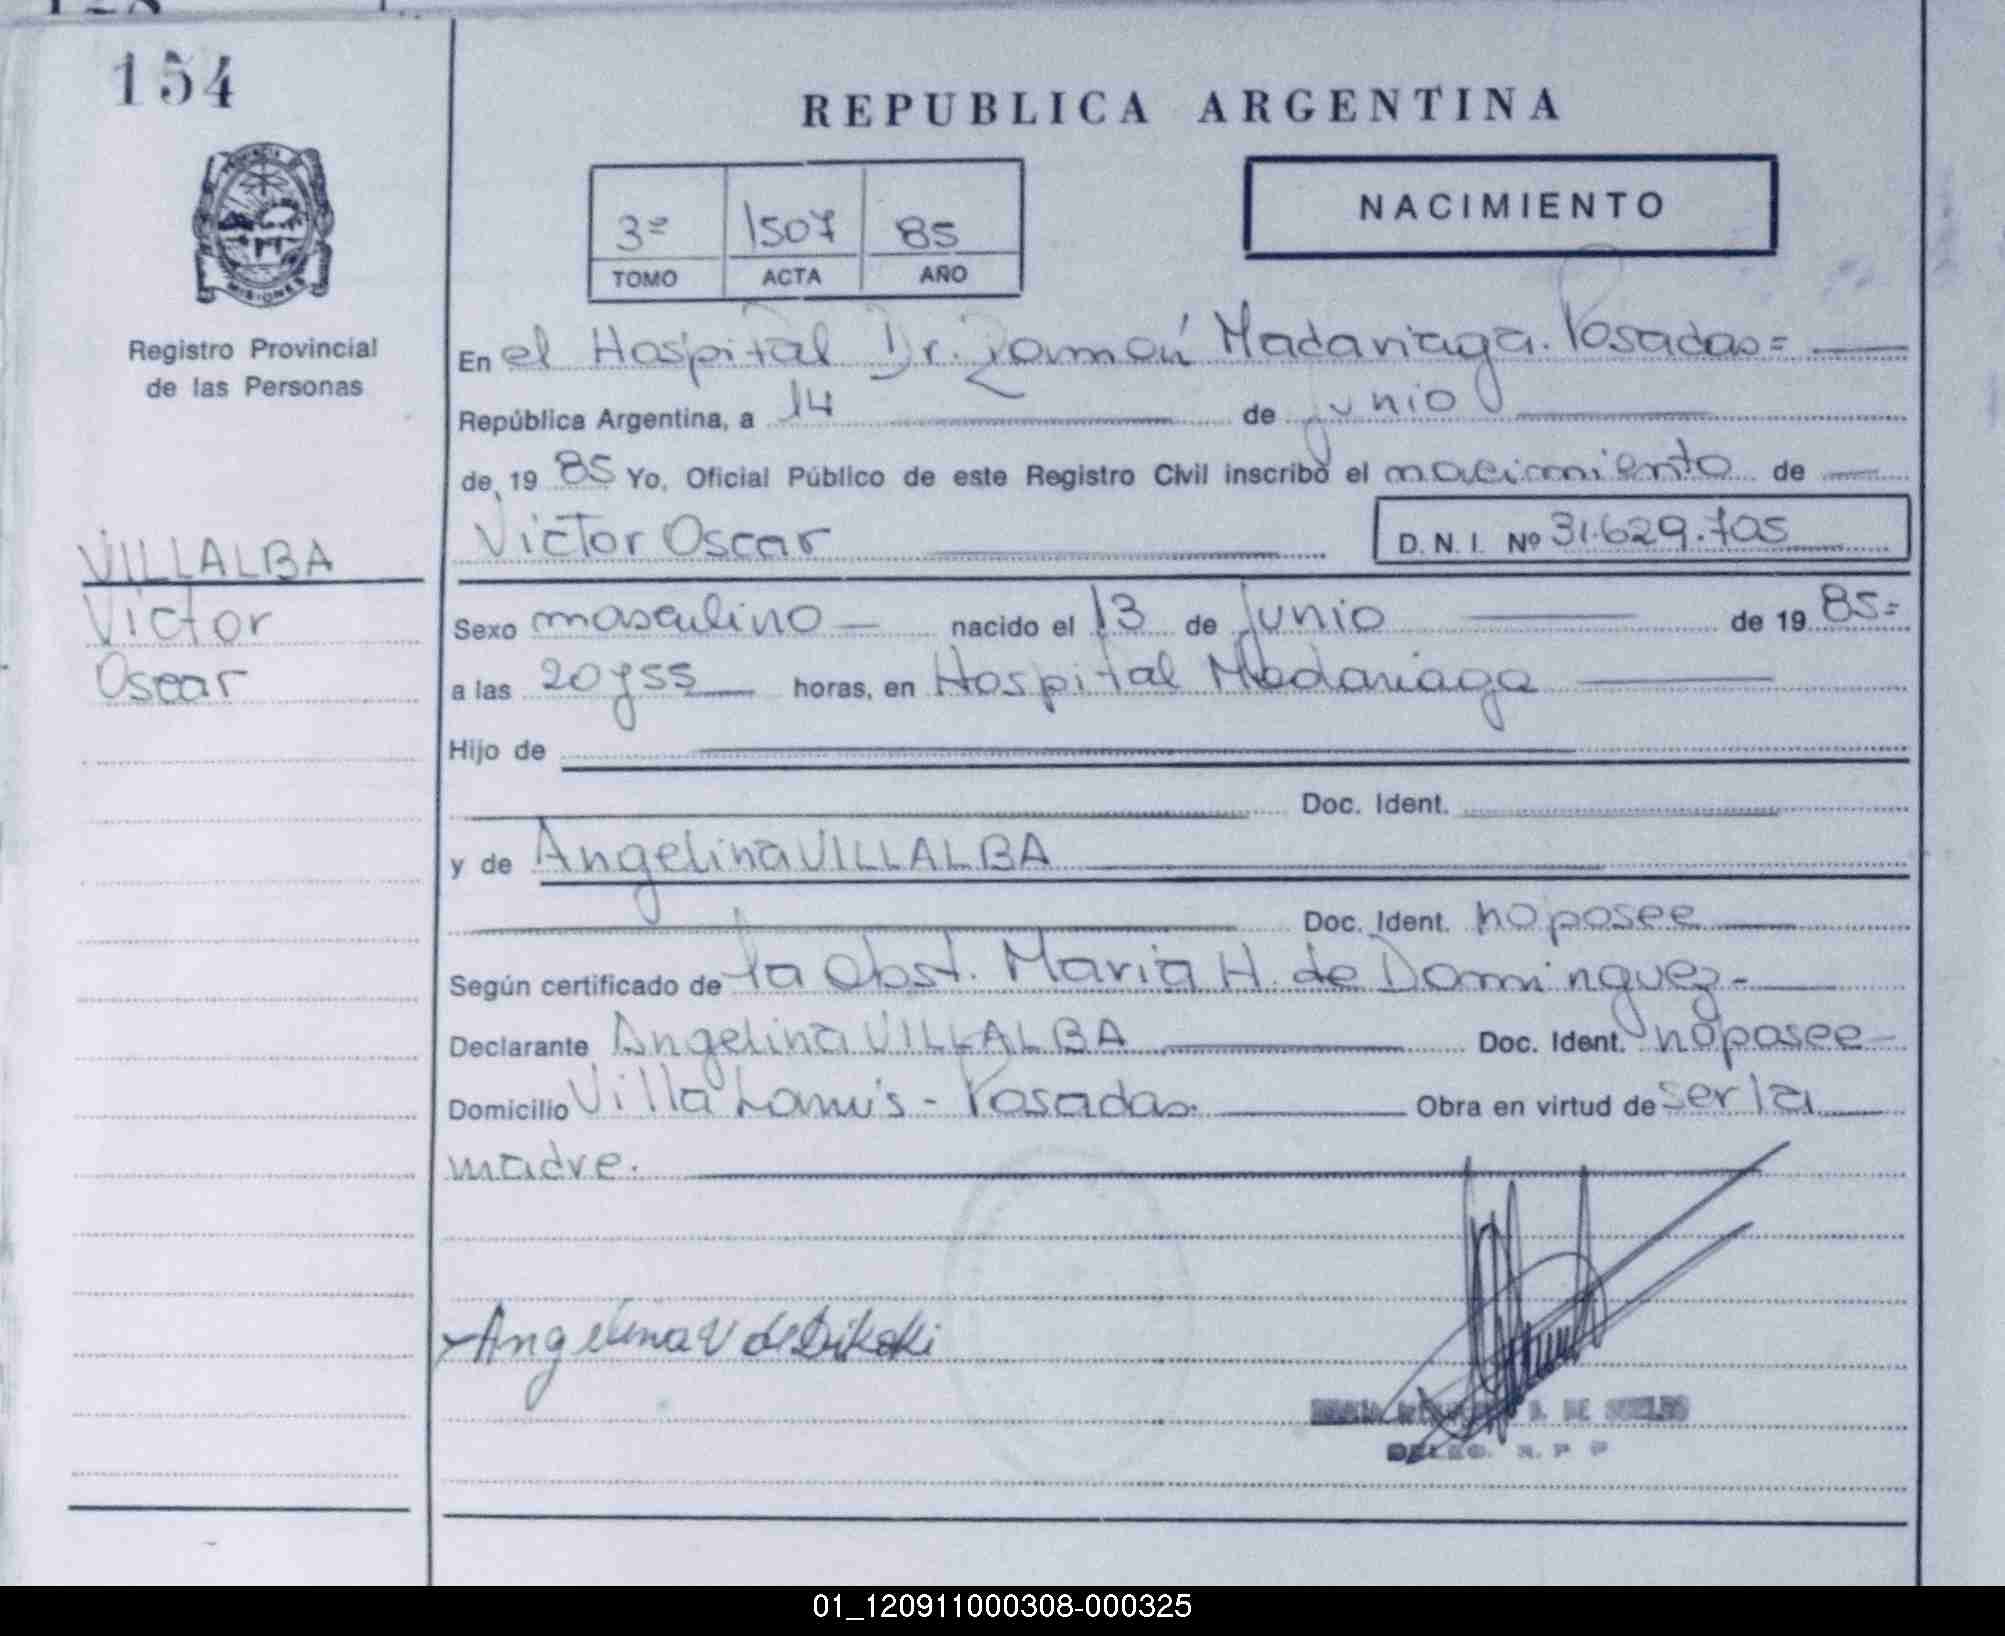 154
REPUBLICA ARGENTINA
NACIMIENTO
3º 1507 85
TOMO ACTA AÑO
PROVINCIA DE
MISIONES
Registro Provincial
de las Personas
En el Hospital Dr. Ramón Madariaga. Posadas=
República Argentina, a 14 de junio
de 19 85 Yo, Oficial Público de este Registro Civil inscribo el nacimiento de
Victor Oscar D.N.I. Nº 31.629.705
VILLALBA
Victor
Oscar
Sexo masculino nacido el 13 de Junio de 19 85=
a las 20 y 55 horas, en Hospital Madariaga
Hijo de
Doc. Ident.
y de Angelina VILLALBA
Doc. Ident. no posee
Según certificado de la Obst. Maria H. de Dominguez-
Declarante Angelina VILLALBA Doc. Ident. no posee
Domicilio Villa Lanús - Posadas. Obra en virtud de ser la
madre.
Angelina V de
DE
R. P. P
01_120911000308-000325